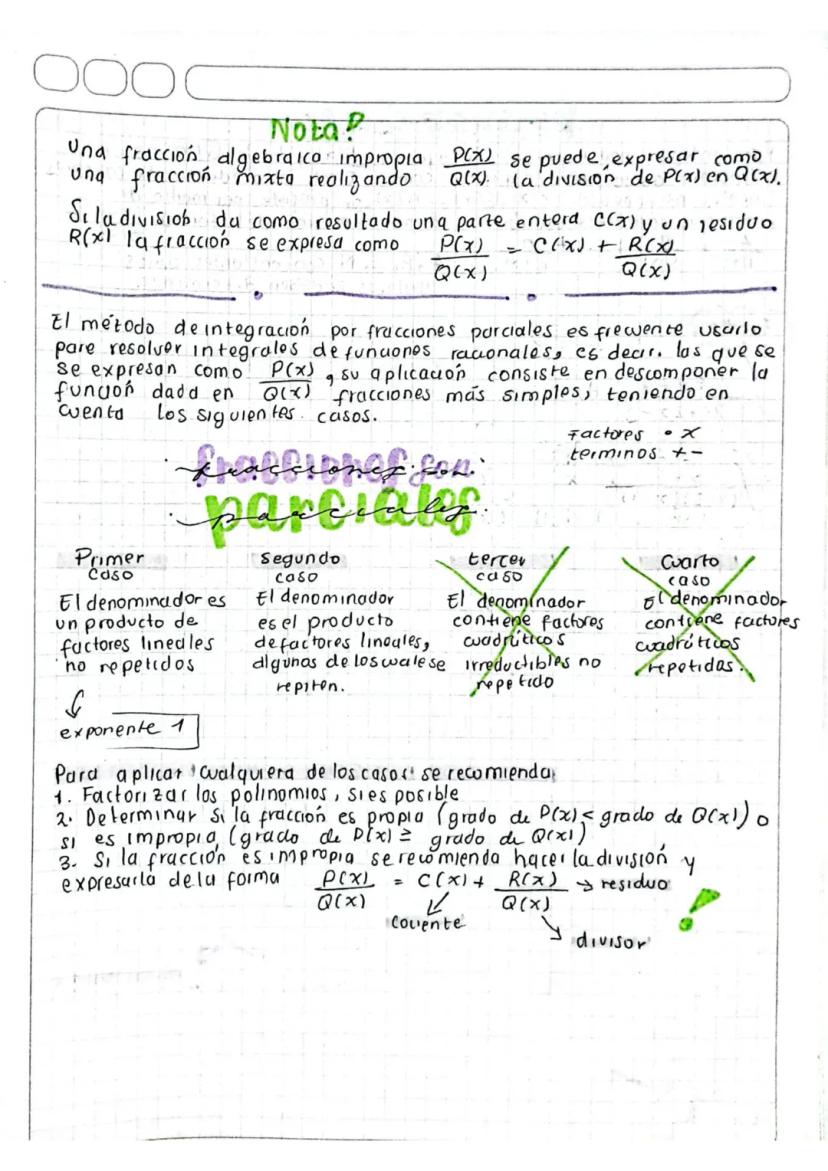 Nota!
Una fracción algebraica impropia P(x)/Q(x) se puede expresar como
una fracción mixta realizando la división de P(x) en Q(x).
Si la división da como resultado una parte entera C(x) y un residuo
R(x) la fracción se expresa como P(x)/Q(x) = C(x) + R(x)/Q(x)
El método de integración por fracciones parciales es frecuente usarlo
para resolver integrales de funciones racionales, es decir, las que se
se expresan como P(x)/Q(x), su aplicación consiste en descomponer la
función dada en fracciones más simples, teniendo en
cuenta los siguientes casos.
Factores • x
terminos + -
fracciones con
parciales
Primer
caso
El denominador es
un producto de
factores lineales
no repetidos
exponente 1
Segundo
caso
El denominador
es el producto
de factores lineales,
algunos de los cuale se
repiten.
tercer
caso
El denominador
contiene factores
cuadráticos
irreductibles no
repetido
Cuarto
caso
El denominador
contiene factores
cuadráticos
repetidas.
Para aplicar cualquiera de los casos se recomienda:
1. Factorizar los polinomios, si es posible
2. Determinar si la fracción es propia (grado de P(x) < grado de Q(x)) o
si es impropia (grado de P(x) ≥ grado de Q(x))
3. Si la fracción es impropia se recomienda hacer la división y
expresarla de la forma P(x)/Q(x) = C(x) + R(x)/Q(x) → residuo
cociente
divisor